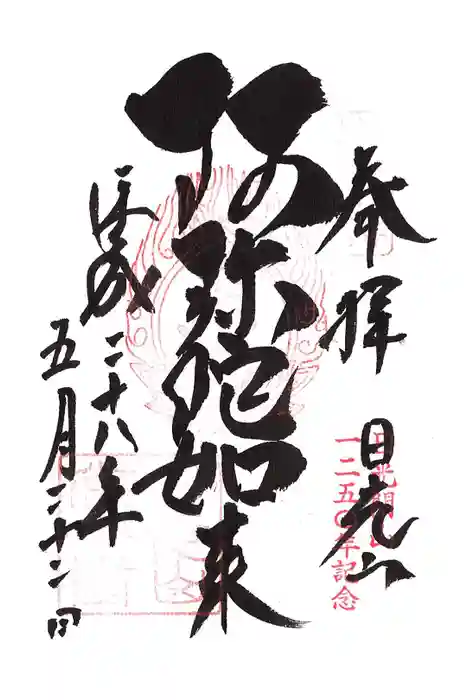 奉拝
日光山
一二五〇年記念
阿弥陀如来
平成二十八年
五月二十二日